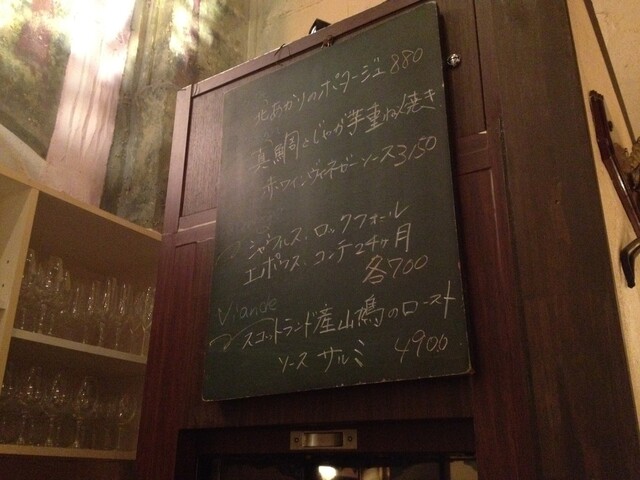 北あかりのポタージュ 880
真鯛とじゃが芋重ね焼き
赤ワインヴィネガーソース 3150
シャウルス、ロックフォール
エポワス、コンテ24ヶ月
各700
Viande
スコットランド産山鳩のロースト
ソース サルミ 4900